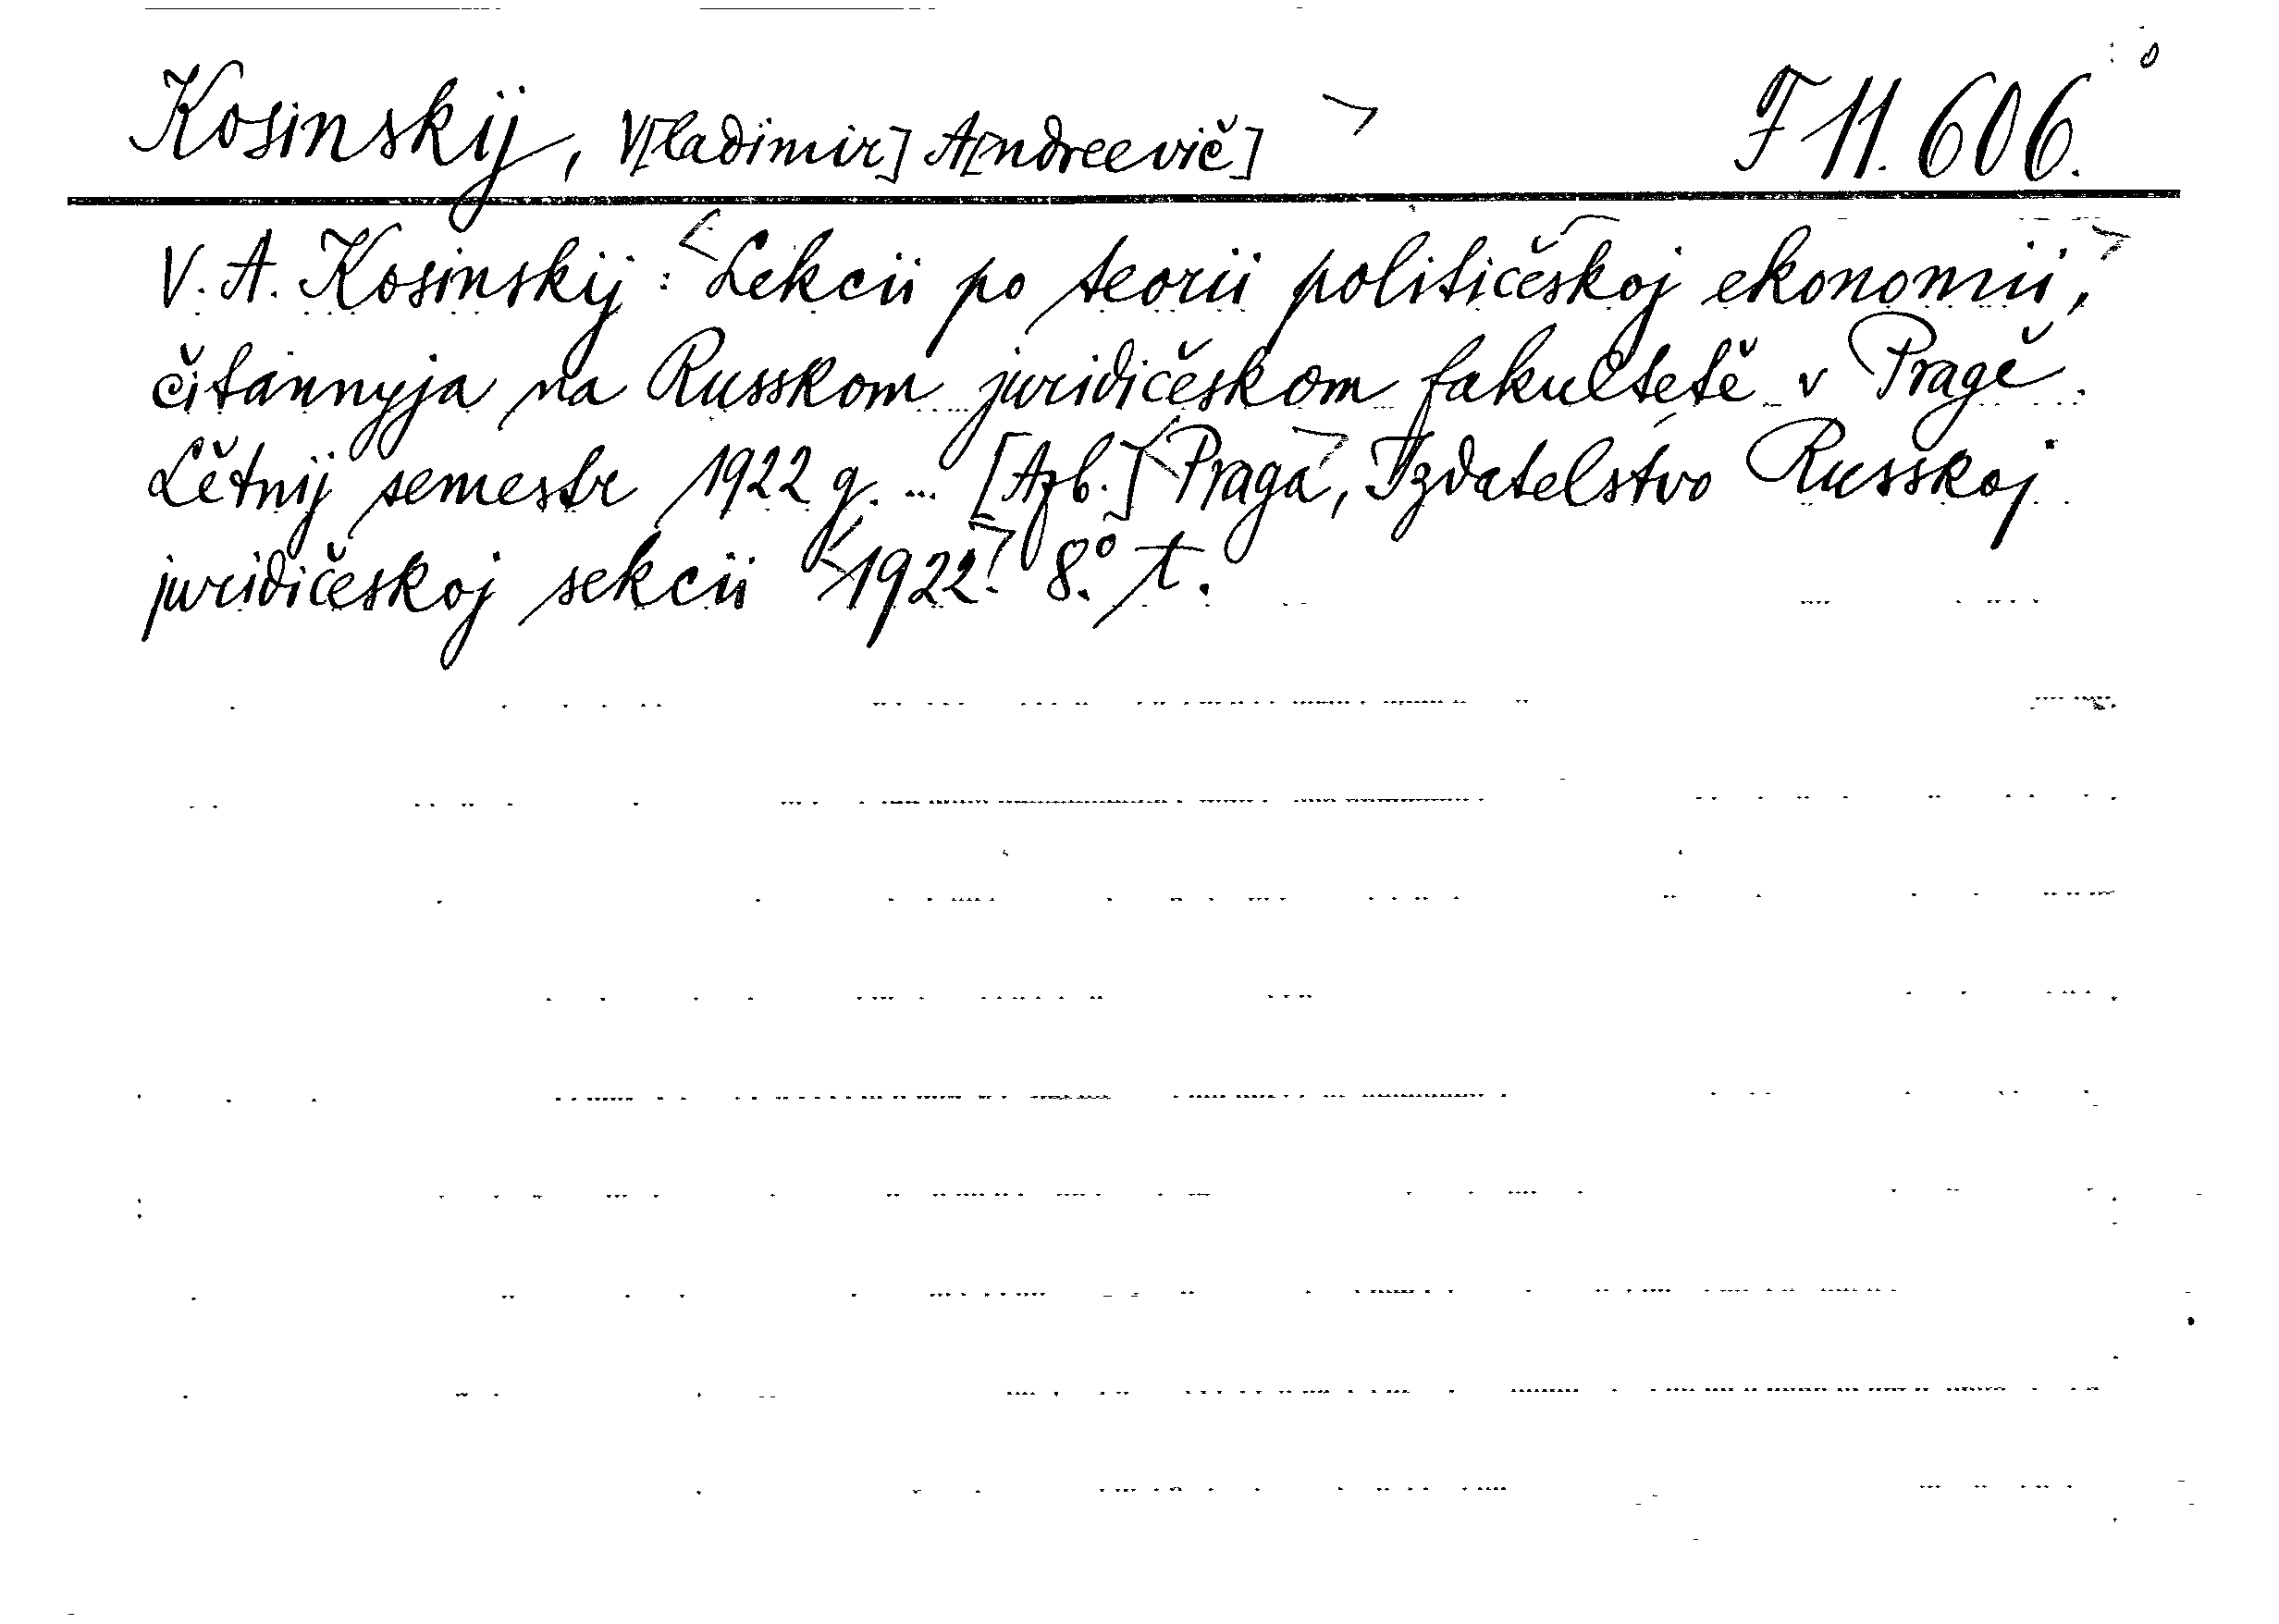 Kosinskij, V[ladimir] A[ndreevič] F 11.606.
V. A. Kosinskij: Lekcii po teorii političeskoj ekonomii,
čitannyja na Russkom juridičeskom fakultetě v Pragě.
Lětnij semestr 1922 g. ... [Azb.] Praga, Izdatelstvo Russkoj
juridičeskoj sekcii 1922. 8.° t.